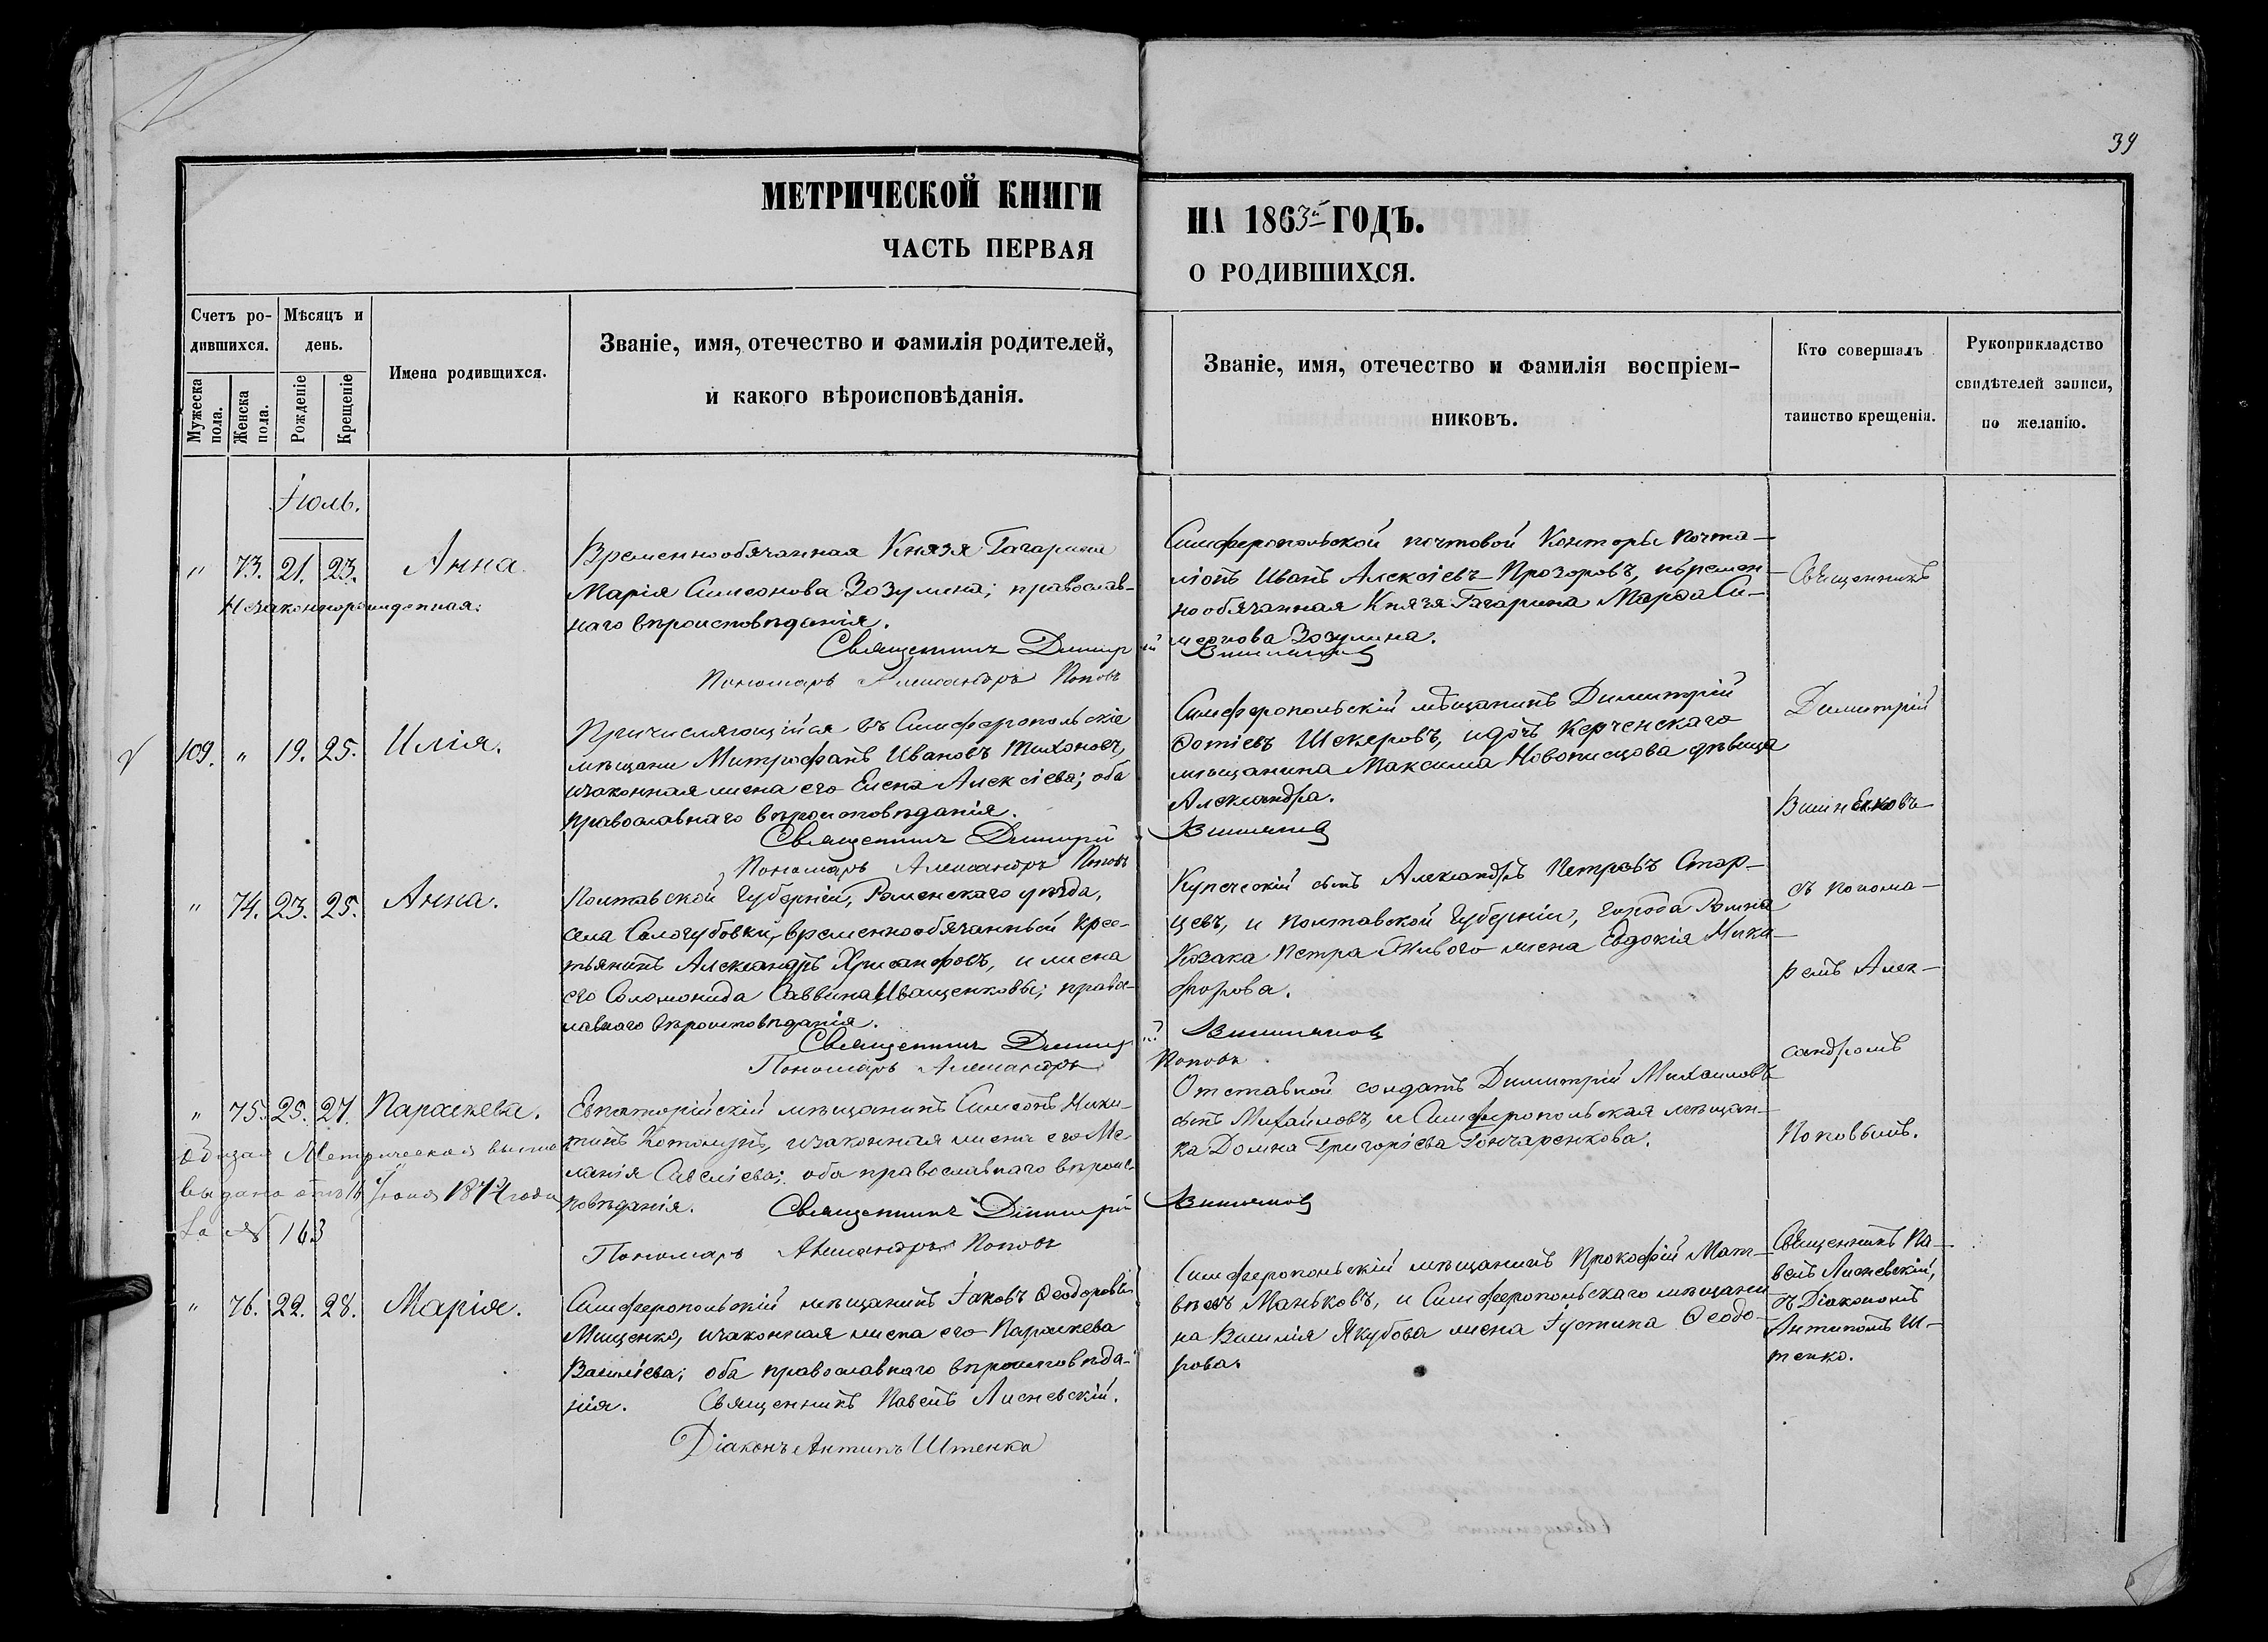 39
МЕТРИЧЕСКОЙ КНИГИ
ЧАСТЬ ПЕРВАЯ
НА 1863й ГОДЪ.
О РОДИВШИХСЯ.
Счетъ ро-
дившихся.
Мужеска
пола.
Женска
пола.
Мѣсяцъ и
день.
Рожденіе
Крещеніе
Имена родившихся.
Званіе, имя, отечество и фамилія родителей,
и какого вѣроисповѣданія.
Званіе, имя, отечество и фамилія воспріем-
никовъ.
Кто совершалъ
таинство крещенія.
Рукоприкладство
свидѣтелей записи,
по желанію.
Іюль.
" 73. 21. 23. Анна.
Незаконнорожденная.
Временнообязанная Князя Гагарина
Марія Симеонова Зозулина; православ-
наго вѣроисповѣданія.
Священникъ Димитрій Вишняковъ
Пономарь Александръ Поповъ
Симферопольской почтовой Конторы почта-
ліонъ Иванъ Алексіевъ Прозоровъ, и времен-
нообязанная Князя Гагарина Марѳа Си-
меонова Зозулина.
109. " 19. 25. Илія.
Причисляющійся въ Симферопольскіе
мѣщане Митрофанъ Ивановъ Тихоновъ,
и законная жена его Елена Алексіева; оба
православнаго вѣроисповѣданія.
Священникъ Димитрій Вишняковъ
Пономарь Александръ Поповъ
Симферопольскій мѣщанинъ Димитрій
Фотіевъ Шекяровъ, и дочь Керченскаго
мѣщанина Максима Новописцова дѣвица
Александра.
" 74. 23. 25. Анна.
Полтавской Губерніи, Роменскаго уѣзда,
села Сологубовки, временнообязанный крес-
тьянинъ Александръ Хрисанфовъ, и жена
его Соломонида Саввина Иващенковы; право-
славнаго вѣроисповѣданія.
Священникъ Димитрій Вишняковъ
Пономарь Александръ Поповъ
Купеческій сынъ Александръ Петровъ Стар-
цевъ, и Полтавской Губерніи, города Ромна
Козака Петра жена Евдокія Ники-
форова.
" 75. 25. 27. Параскева.
Евпаторійскій мѣщанинъ Симеонъ Ники-
тинъ и законная жена его Ме-
ланія Савеліева; оба православнаго вѣроис-
повѣданія. Священникъ Димитрій Вишняковъ
Пономарь Александръ Поповъ
Отставной солдатъ Димитрій Михаиловъ
сынъ Михайловъ, и Симферопольская мѣщан-
ка Домна Григоріева Гончаренкова.
выдана 16 Іюня 1874 года
За № 163
" 76. 22. 28. Марія.
Симферопольскій мѣщанинъ Іаковъ Ѳеодоровъ
Мищенко, и законная жена его Параскева
Василіева; оба православнаго вѣроисповѣда-
нія. Священникъ Павелъ Лисневскій.
Діаконъ Антипъ Штенко
Симферопольскій мѣщанинъ Прокофій Мат-
вѣевъ Маньковъ, и Симферопольскаго мѣщани-
на Василія Якубова жена Іустина Ѳеодо-
рова.
Священникъ
Димитрій
Вишняковъ
съ понома-
ремъ Алек-
сандромъ
Поповымъ.
Священникъ Па-
велъ Лисневскій,
съ Діакономъ
Антипомъ Ш-
тенко.